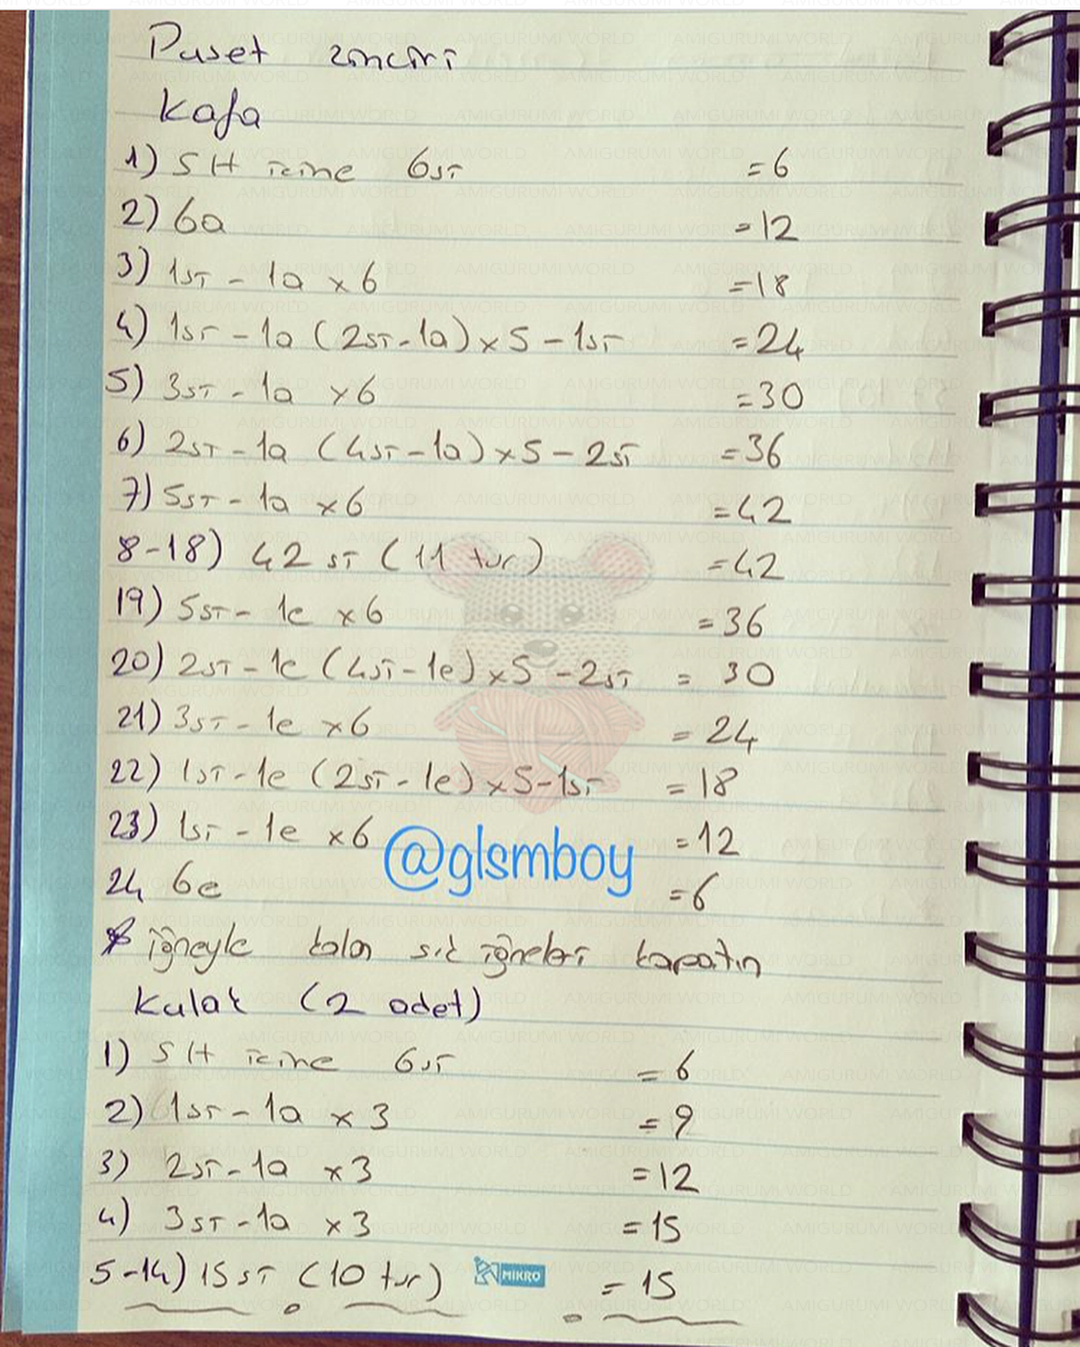 Puset zinciri
Kafa
1) SH içine 6sı =6
2) 6a =12
3) 1sı - 1a x6 =18
4) 1sı - 1a (2sı - 1a) x5 - 1sı =24
5) 3sı - 1a x6 =30
6) 2sı - 1a (4sı - 1a) x5 - 2sı =36
7) 5sı - 1a x6 =42
8-18) 42 sı (11 tur) =42
19) 5sı - 1e x6 =36
20) 2sı - 1e (4sı - 1e) x5 - 2sı = 30
21) 3sı - 1e x6 = 24
22) 1sı - 1e (2sı - 1e) x5 - 1sı = 18
23) 1sı - 1e x6 =12
@glsmboy
24 6e =6
* iğneyle kalan sık iğneleri kapatın
Kulak (2 adet)
1) SH içine 6sı = 6
2) 1sı - 1a x3 = 9
3) 2sı - 1a x3 =12
4) 3sı - 1a x3 =15
5-14) 15sı (10 tur) = 15
MIKRO
AMIGURUMI WORLD